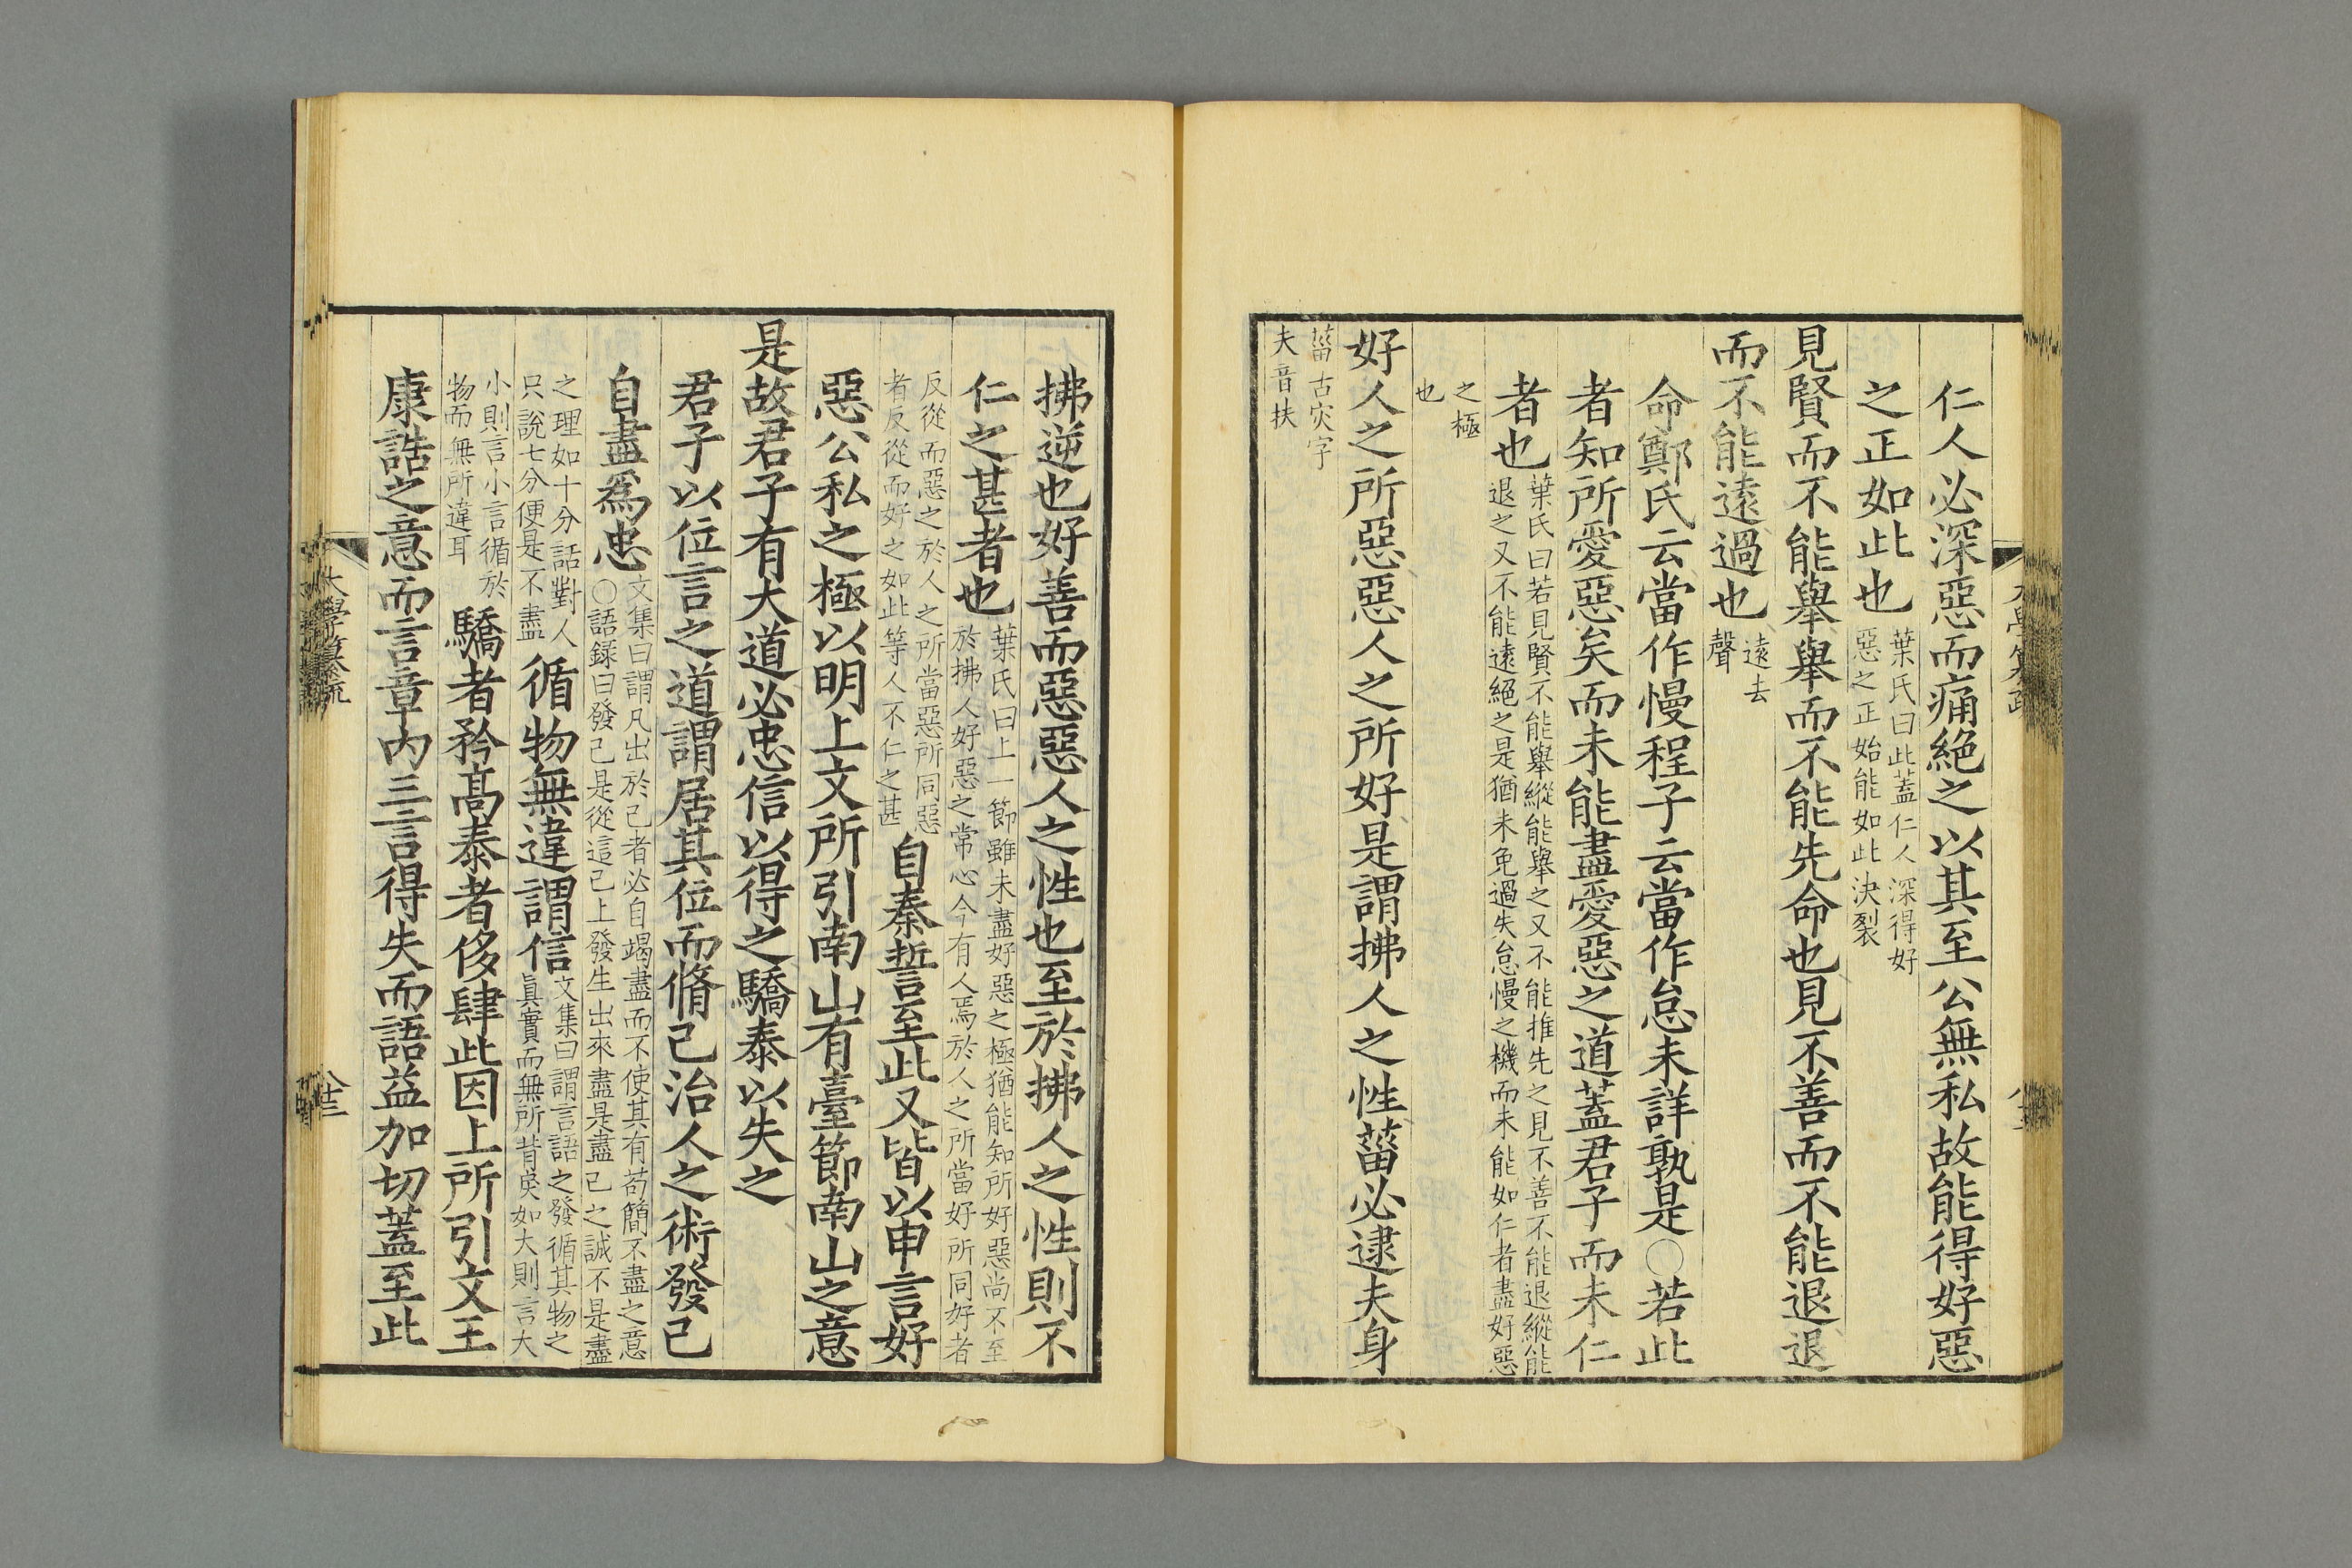 仁人必深惡而痛絕之以其至公無私故能得好惡
之正如此也
葉氏曰此蓋仁人深得好
惡之正始能如此決裂
見賢而不能舉舉而不能先命也見不善而不能退退
而不能遠過也
遠去
聲
命鄭氏云當作慢程子云當作怠未詳孰是○若此
者知所愛惡矣而未能盡愛惡之道蓋君子而未仁
者也
葉氏曰若見賢不能舉縱能舉之又不能推先之見不善不能退縱能
退之又不能遠絕之是猶未免過失怠慢之機而未能如仁者盡好惡
之極
也
好人之所惡惡人之所好是謂拂人之性菑必逮夫身
菑古灾字
夫音扶
拂逆也好善而惡惡人之性也至於拂人之性則不
仁之甚者也
葉氏曰上一節雖未盡好惡之極猶能知所好惡尚不至
於拂人好惡之常心今有人焉於人之所當好所同好者
反從而惡之於人之所當惡所同惡
者反從而好之如此等人不仁之甚
自秦誓至此又皆以申言好
惡公私之極以明上文所引南山有臺節南山之意
是故君子有大道必忠信以得之驕泰以失之
君子以位言之道謂居其位而脩己治人之術發己
自盡爲忠
文集曰謂凡出於己者必自竭盡而不使其有苟簡不盡之意
○語錄曰發己是從這己上發生出來盡是盡己之誠不是盡
之理如十分話對人
只說七分便是不盡
循物無違謂信
文集曰謂言語之發循其物之
眞實而無所背戾如大則言大
小則言小言循於
物而無所違耳
驕者矜高泰者侈肆此因上所引文王
康誥之意而言章內三言得失而語益加切蓋至此
大學纂疏